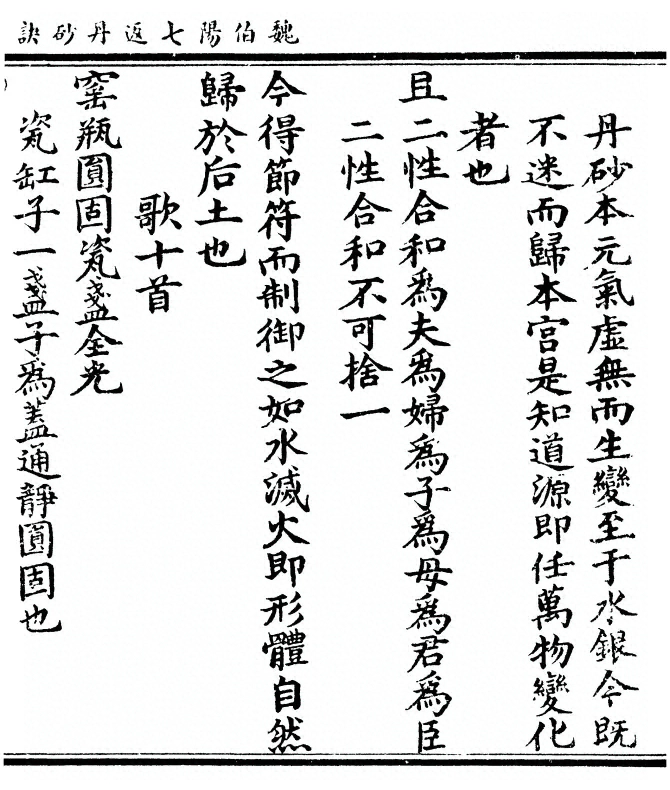 魏伯陽七返丹砂訣
丹砂本元氣虛無而生變至于水銀今既
不迷而歸本宮是知道源即任萬物變化
者也
且二性合和為夫為婦為子為母為君為臣
二性合和不可捨一
今得節符而制御之如水滅火即形體自然
歸於后土也
歌十首
窑瓶圓固瓷盞全光
瓷缸子一盞子為蓋通靜圓固也